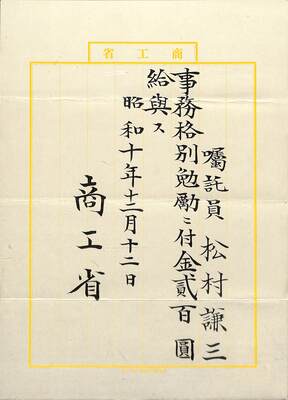 省工商
囑託員 松村謙三
事務格別勉勵ニ付金貳百圓
給與ス
昭和十年十二月十二日
商工省